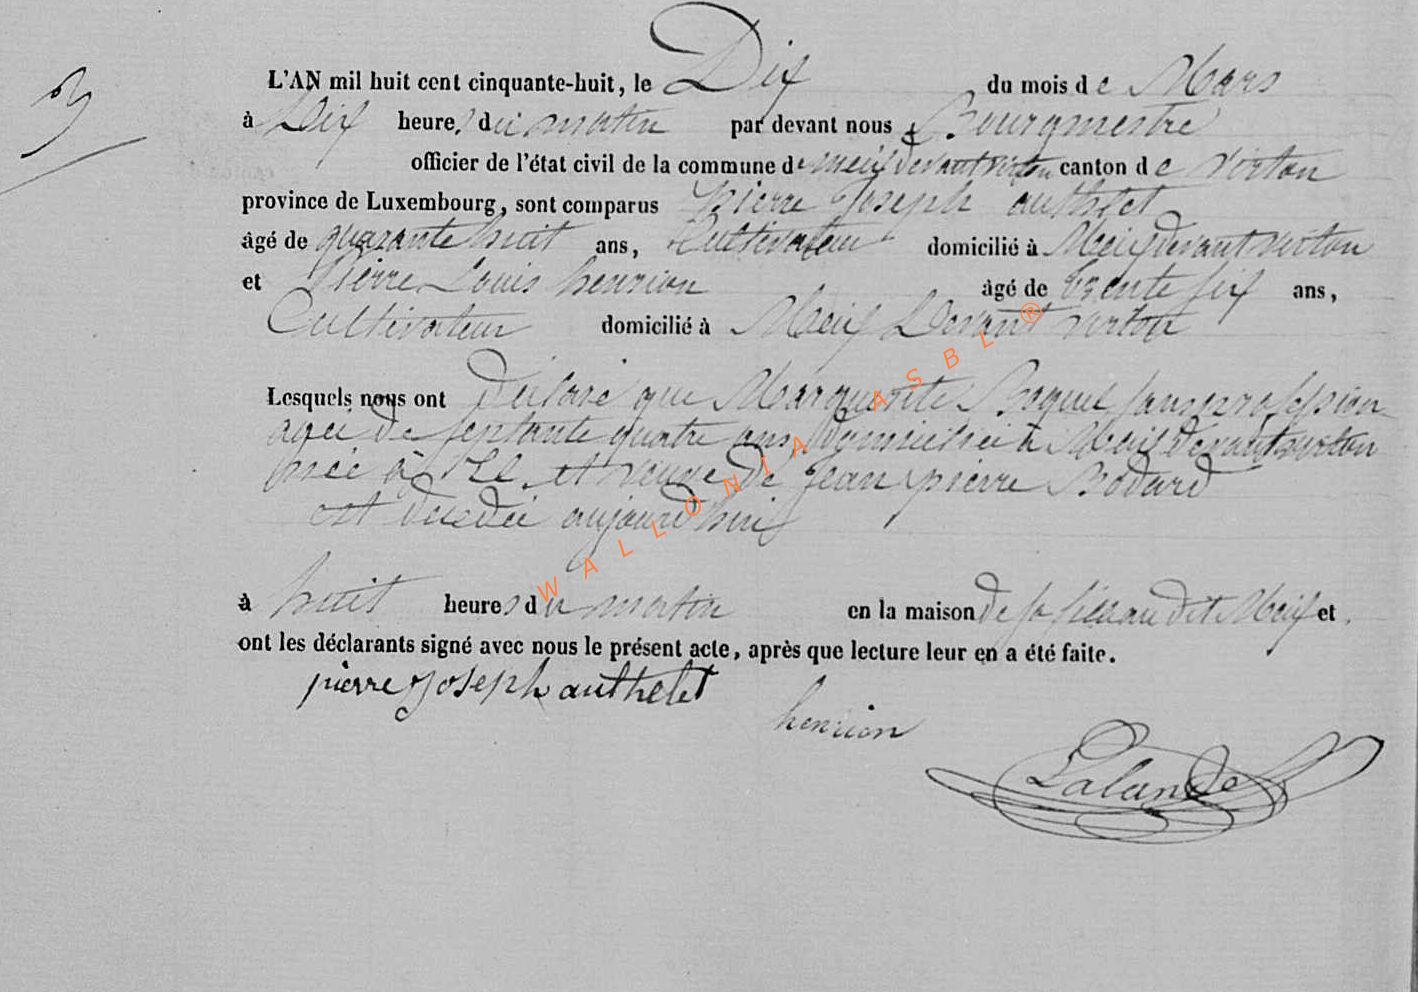 3
L'AN mil huit cent cinquante-huit, le Dix du mois de Mars
à Dix heures du matin par devant nous Bourgmestre
officier de l'état civil de la commune de meix devant virton canton de virton
province de Luxembourg, sont comparus pierre Joseph authelet
âgé de quarante huit ans, Cultivateur domicilié à Meix devant virton
et Pierre Louis henrion âgé de trente six ans,
Cultivateur domicilié à Meix Devant virton
Lesquels nous ont Déclaré que Marguerite sans profession
agée de septante quatre ans domiciliée à Meix Devant virton
née à et veuve de Jean pierre Bodard
est décédée aujourd'hui
à huit heures du matin en la maison de sa au dit Meix et
ont les déclarants signé avec nous le présent acte, après que lecture leur en a été faite.
pierre Joseph authelet
henrion
Lalande
WALLONIA ASBL ®